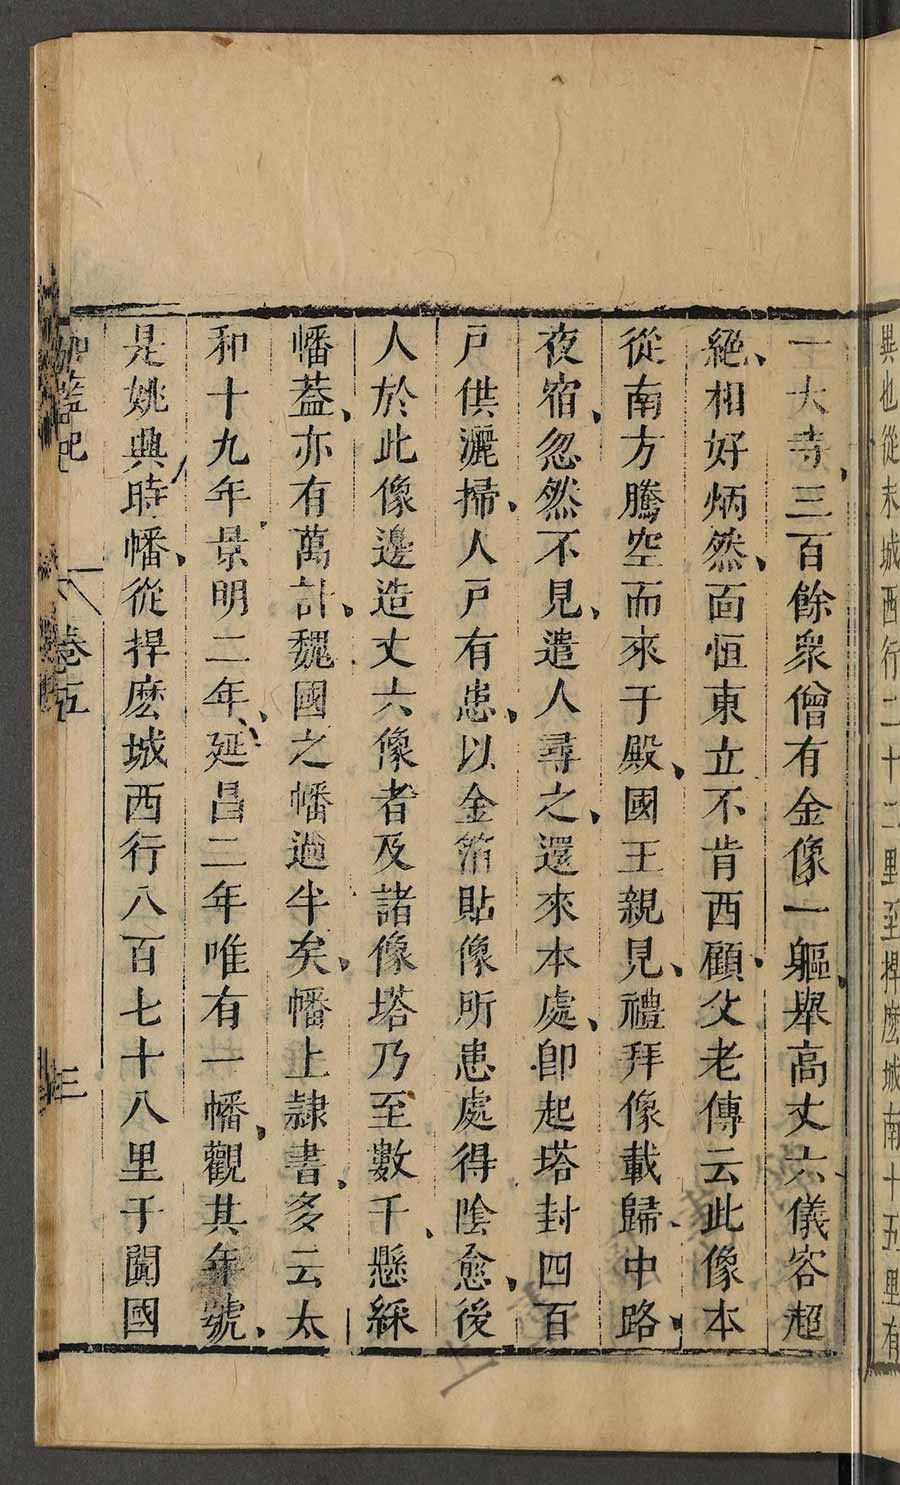 異也從末城西行二十二里至捍𡡉城南十五里有
一大寺三百餘衆僧有金像一軀舉高丈六儀容超
絶相好炳然面恒東立不肯西顧父老傳云此像本
從南方騰空而來于殿國王親見禮拜像載歸中路
夜宿忽然不見遣人尋之還來本處卽起塔封四百
戸供灑掃人戸有患以金箔貼像所患處得陰愈後
人於此像邊造丈六像者及諸像塔乃至數千懸綵
幡葢亦有萬計魏國之幡過半矣幡上隷書多云太
和十九年景明二年延昌二年唯有一幡觀其年號
是姚興時幡從捍麽城西行八百七十八里于闐國
伽藍記 卷五 三